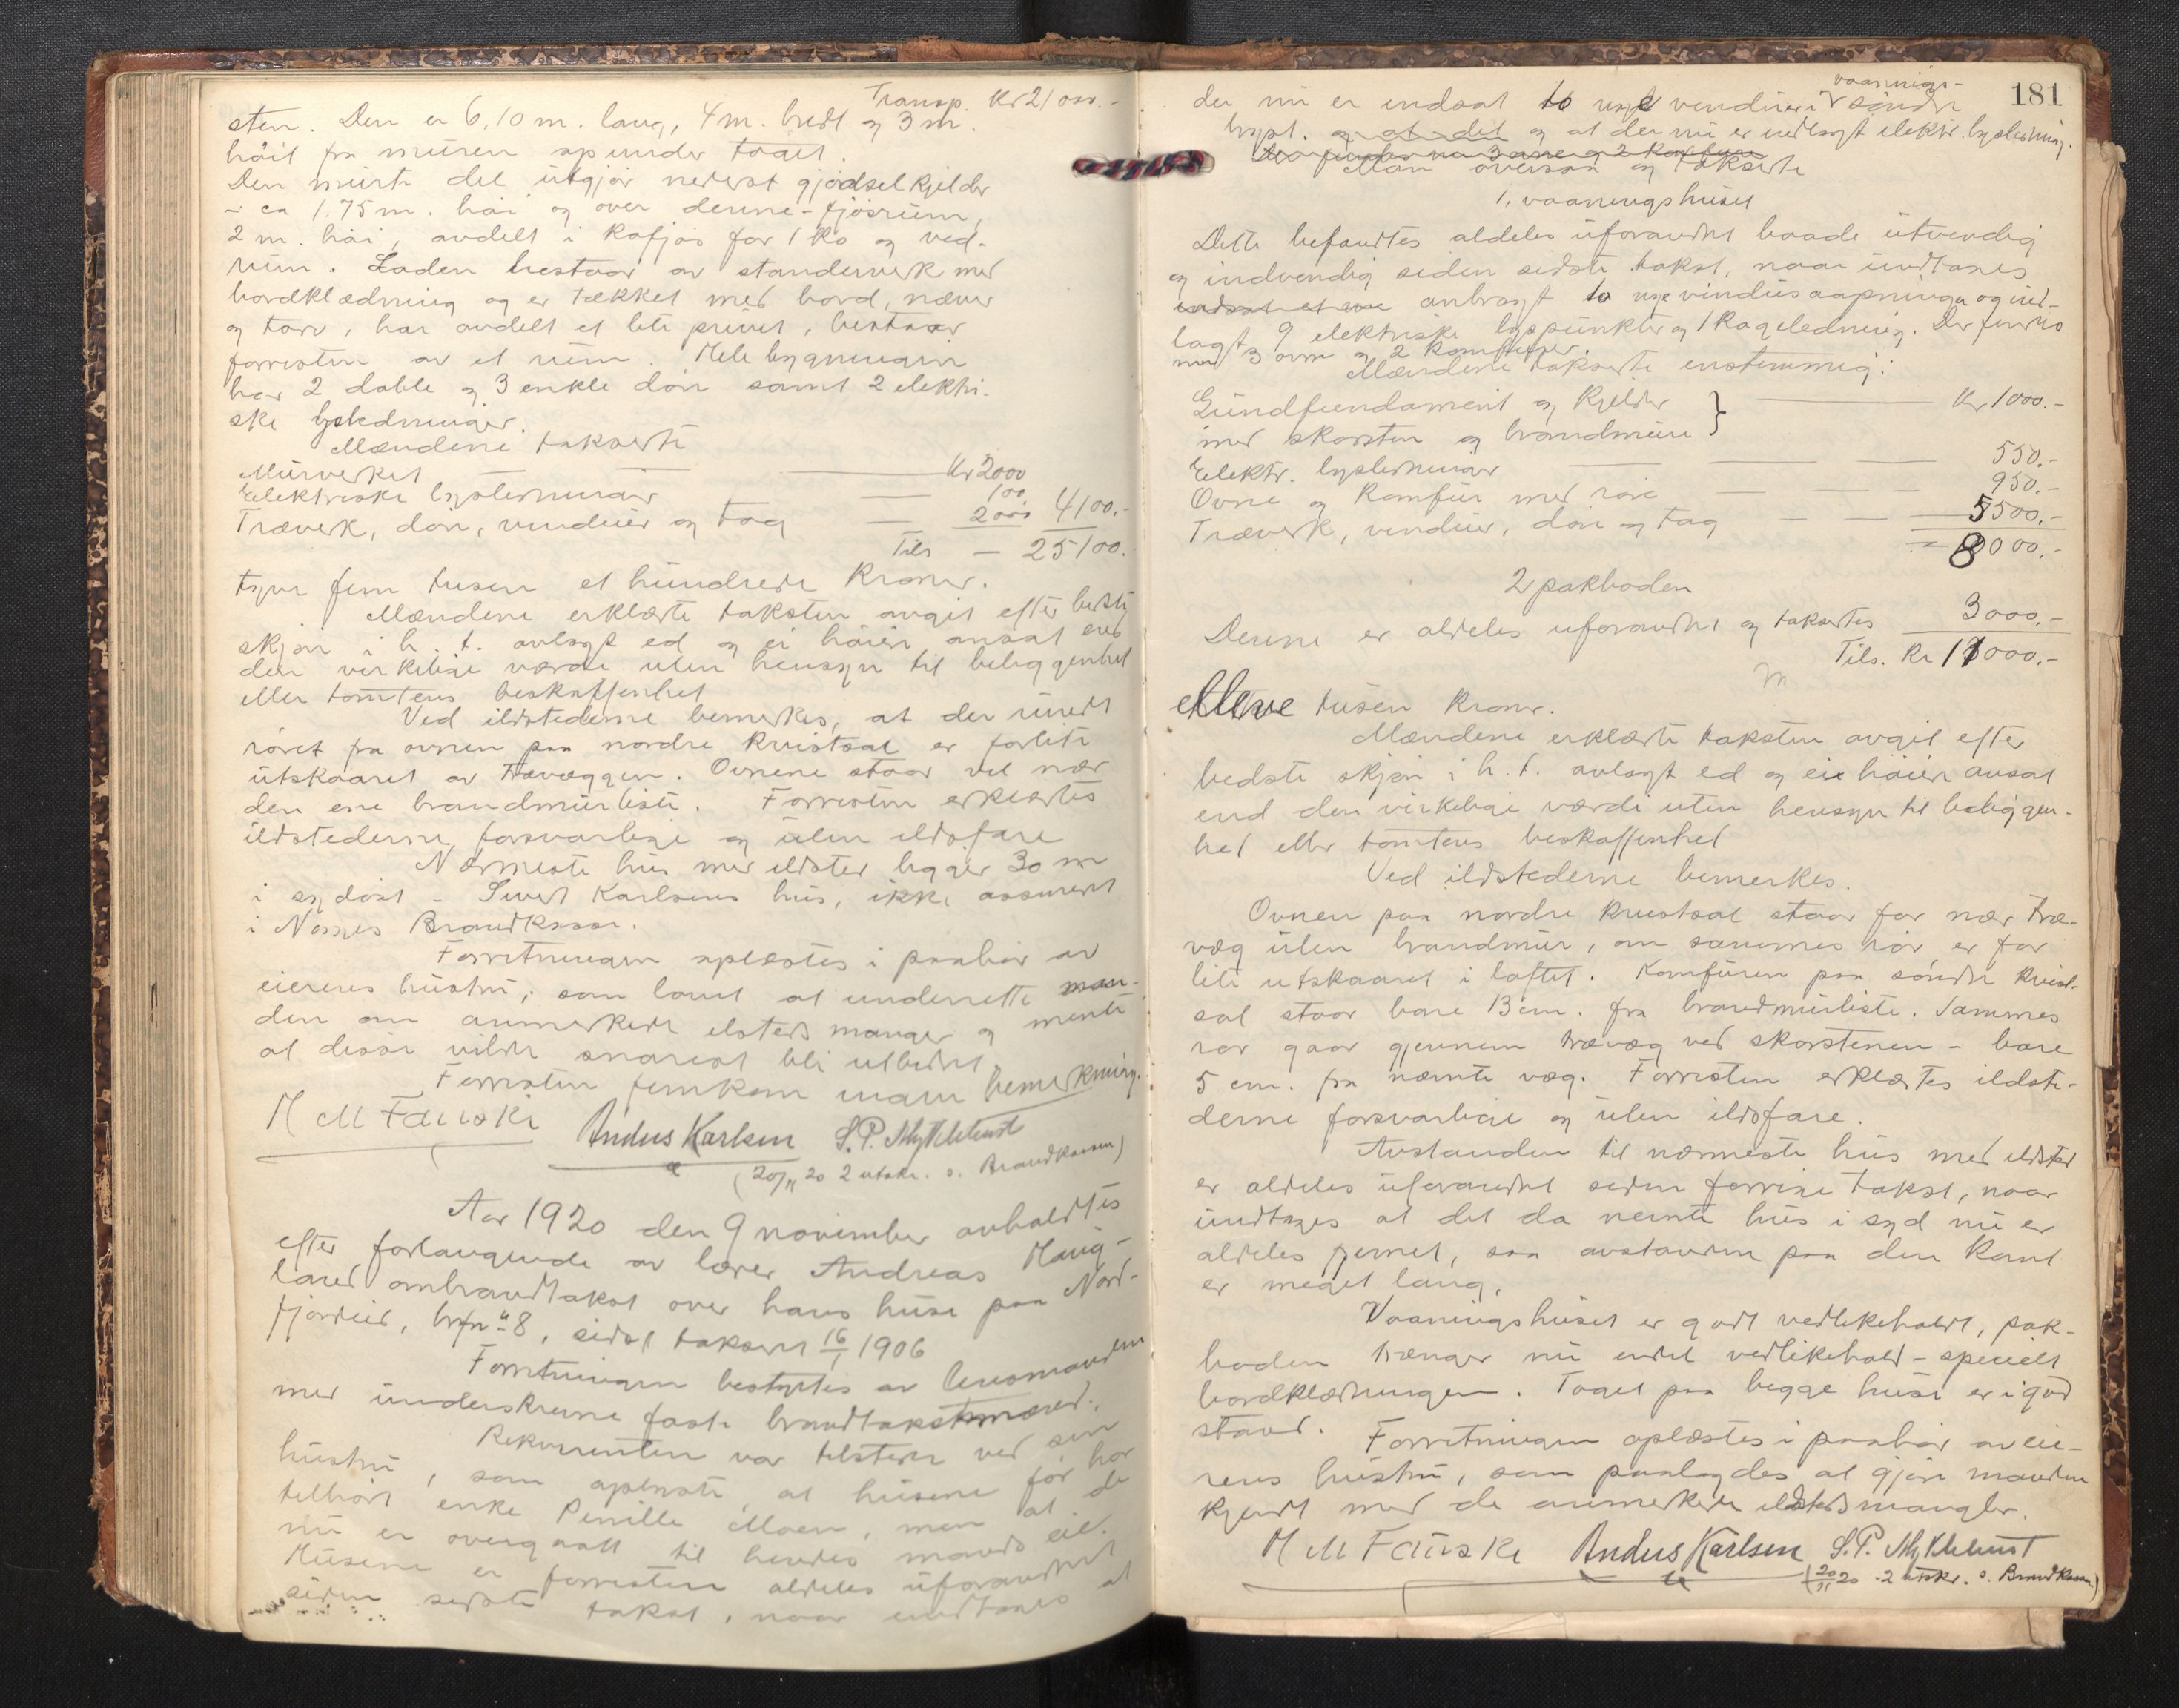 Transp. Kr 21000.-
sten. Den er 6,10 m. lang, 4 m. bredt og 3 m.
höit fra muren op under taget.
Den murte del utgjör nederst gjödselkjelder
- ca 1.75 m. höi og over denne - fjösrum,
2 m. höi, avdelt i kofjös for 1 ko og ved-
rum. Laden bestaar av standerverk med
bordklædning og er tækket med bord, næver
og torv, har avdelt et lite privet, bestaar
forresten av et rum. Hele bygningen
har 2 doble og 3 enkle dör samt 2 elektri-
ske lysledninger.
Mændene takserte
Murverket Kr 2000
Elektriske lysledninger 100
Træverk, dör, vinduer og tag 2000 4100.-
Tils - 25100.
tyve fem tusen et hundrede kroner.
Mændene erklærte taksten avgit efter bedste
skjön i h. t. avlagt ed og ei höiere ansat end
den virkelige værdi uten hensyn til beliggenhet
eller tomtens beskaffenhet
Ved ildstederne bemerkes, at der rundt
röret fra ovnen paa nordre kvistsal er forlite
utskaaret av trævæggen. Ovnene staar vel nær
den ene brandmurliste. Forresten erklærtes
ildstederne forsvarlige og uten ildsfare
Nærmeste hus med ildsted ligger 30 m
i sydöst - Sivert Karlsens hus, ikke assurert
i Norges Brandkasse.
Forretningen oplæstes i paahör av
eierens hustru, som lovet at underrette man-
den om anmerkede ilsteds mangler og mente
at disse vilde snarest bli utbedret
Forresten fremkom ingen bemerkning.
H M Fauske Andus Karlsen S.P. Myklebust
(20/11 20 2 utskr. s. Brandkassen)
Aar 1920 den 9 november avholdtes
efter forlangende av lærer Andreas Haug-
land ombrandtakst over hans huse paa Nord-
fjordeid, brfn 8, sidst taksert 16/1 1906
Forretningen bestyrtes av lensmanden
med underskrevne faste brandtakstmænd.
Rekvirenten var tilstede ved sin
hustru, som oplyste, at husene för har
tilhört enke Pernille Moen, men at de
nu er overgaat til hendes mands eie.
Husene er forresten aldeles uforandret
siden sidste takst, naar undtages at
181
vaanings-
der nu er indsat to nye vinduer i söndre
bygt. og at det og at der nu er indlagt elektr. lysledning.
Der findes nu 3 ovne og 2 komfurer
Man oversaa og takserte
1, vaaningshuset
Dette befandtes aldeles uforandret baade utvendig
og indvendig siden sidste takst, naar undtages
indsat et nye anbragt to nye vindusaapninger og ind-
lagt 9 elektriske lyspunkter og 1 kogeledning. Der findes
nu 3 ovne og 2 komfurer.
Mændene takserte enstemmig:
Gundfundament og kjelder } Kr 1000.-
med skorsten og brandmure
Elektr. lysledninger 550.-
Ovne og komfur med röre 950.-
Træverk, vinduer, dör og tag 5500.-
8000.-
2 pakboden
Denne er aldeles uforandret og takseres 3000.-
Tils. Kr 11000.-
elleve tusen kroner.
Mændene erklærte taksten avgit efter
bedste skjön i h. t. avlagt ed og ei höiere ansat
end den virkelige værdi uten hensyn til beliggen-
het eller tomtens beskaffenhet
Ved ildstederne bemerkes.
Ovnen paa nordre kvistsal staar for nær træ-
væg uten brandmur, om sammes rör er for
lite utskaaret i loftet. Komfuren paa söndre kvist-
sal staar bare 13 cm. fra brandmurliste. Sammes
rör gaar gjennem trævæg ved skorstenen - bare
5 cm. fra nævnte væg. Forresten erklærtes ildste-
derne forsvarlige og uten ildsfare.
Avstanden til nærmeste hus med ildsted
er aldeles uforandret siden forrige takst, naar
undtages at det da nævnte hus i syd nu er
aldeles fjernet, saa avstanden paa den kant
er meget lang.
Vaaningshuset er godt vedlikeholdt, pak-
boden trænger nu endel vedlikehold - specielt
bordklædningen. Taget paa begge huse er i god
stand. Forretningen oplæstes i paahör av eie-
rens hustru, som paalagdes at gjöre manden
kjendt med de anmerkede ildsteds mangler.
H M Fauske Andus Karlsen S.P. Myklebust
(20/11 20 - 2 utskr. s. Brandkassen)